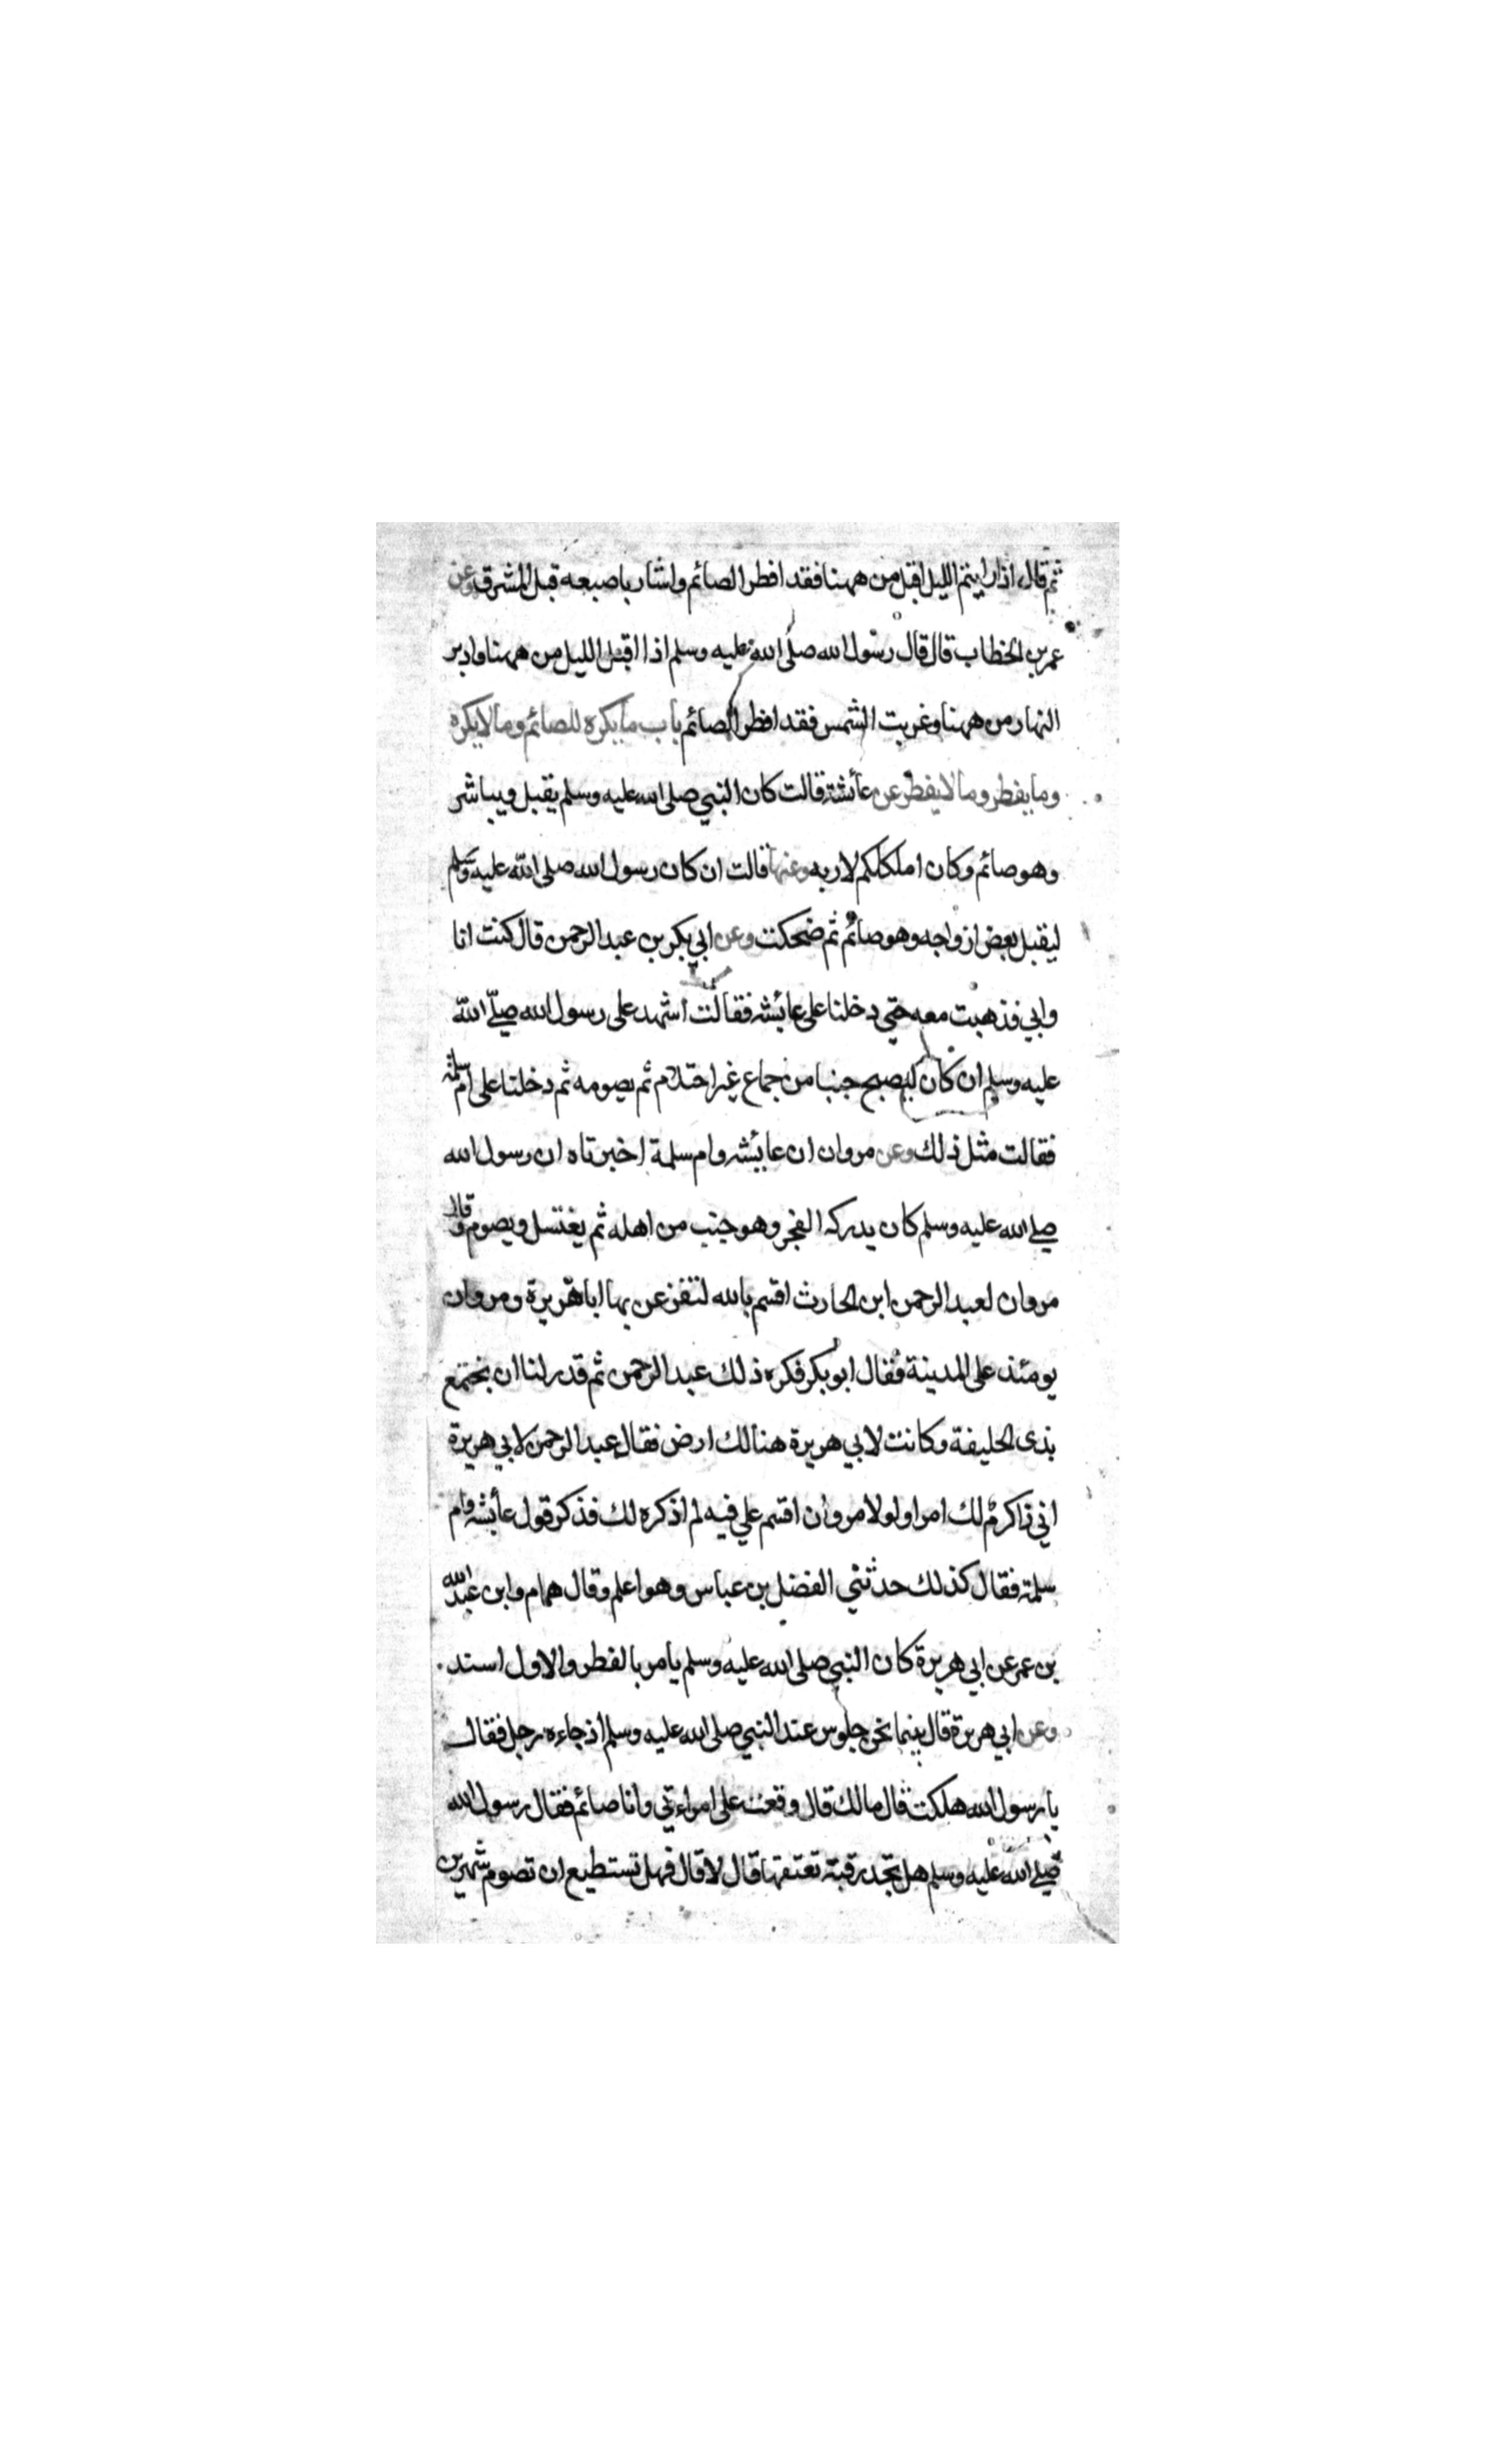 ثم قال اذا رايتم الليل اقبل من ههنا فقد افطر الصائم واشار باصبعه قبل المشرق وعن
عمر بن الخطاب قال قال رسول الله صلى الله عليه وسلم اذا اقبل الليل من ههنا وادبر
النهار من ههنا وغربت الشمس فقد افطر الصائم باب ما يكره للصائم وما لا يكره
وما يفطر وما لا يفطر عن عائشة قالت كان النبي صلى الله عليه وسلم يقبل ويباشر
وهو صائم وكان املككم لاربه وعنها قالت ان كان رسول الله صلى الله عليه وسلم
ليقبل بعض ازواجه وهو صائم ثم ضحكت وعن ابي بكر بن عبد الرحمن قال كنت انا
وابي فذهبت معه حتي دخلنا على عايشه فقالت اشهد على رسول الله صلى الله
عليه وسلم ان كان ليصبح جنبا من جماع غير احتلام ثم يصومه ثم دخلنا على ام سلمة
فقالت مثل ذلك وعن مروان ان عايشه وام سلمة اخبرتاه ان رسول الله
صلى الله عليه وسلم كان يدركه الفجر وهو جنب من اهله ثم يغتسل ويصوم وقال
مروان لعبد الرحمن ابن الحارث اقسم بالله لتفزعن بها ابا هريرة ومروان
يومئذ على المدينة فقال ابو بكر فكره ذلك عبد الرحمن ثم قدر لنا ان نجتمع
بذى الحليفة وكانت لابي هريرة هنالك ارض فقال عبد الرحمن لابي هريرة
اني ذاكر لك امرا ولولا مروان اقسم علي فيه لم اذكره لك فذكر قول عائشه وام
سلمة فقال كذلك حدثني الفضل بن عباس وهو اعلم وقال همام وابن عبد الله
بن عمر عن ابي هريرة كان النبي صلى الله عليه وسلم يامر بالفطر والاول اسند
وعن ابي هريرة قال بينما نحن جلوس عند النبي صلى الله عليه وسلم اذ جاءه رجل فقال
يا رسول الله هلكت قال مالك قال وقعت على امراءتي وانا صائم فقال رسول الله
صلى الله عليه وسلم هل تجد رقبة تعتقها قال لا قال فهل تستطيع ان تصوم شهرين